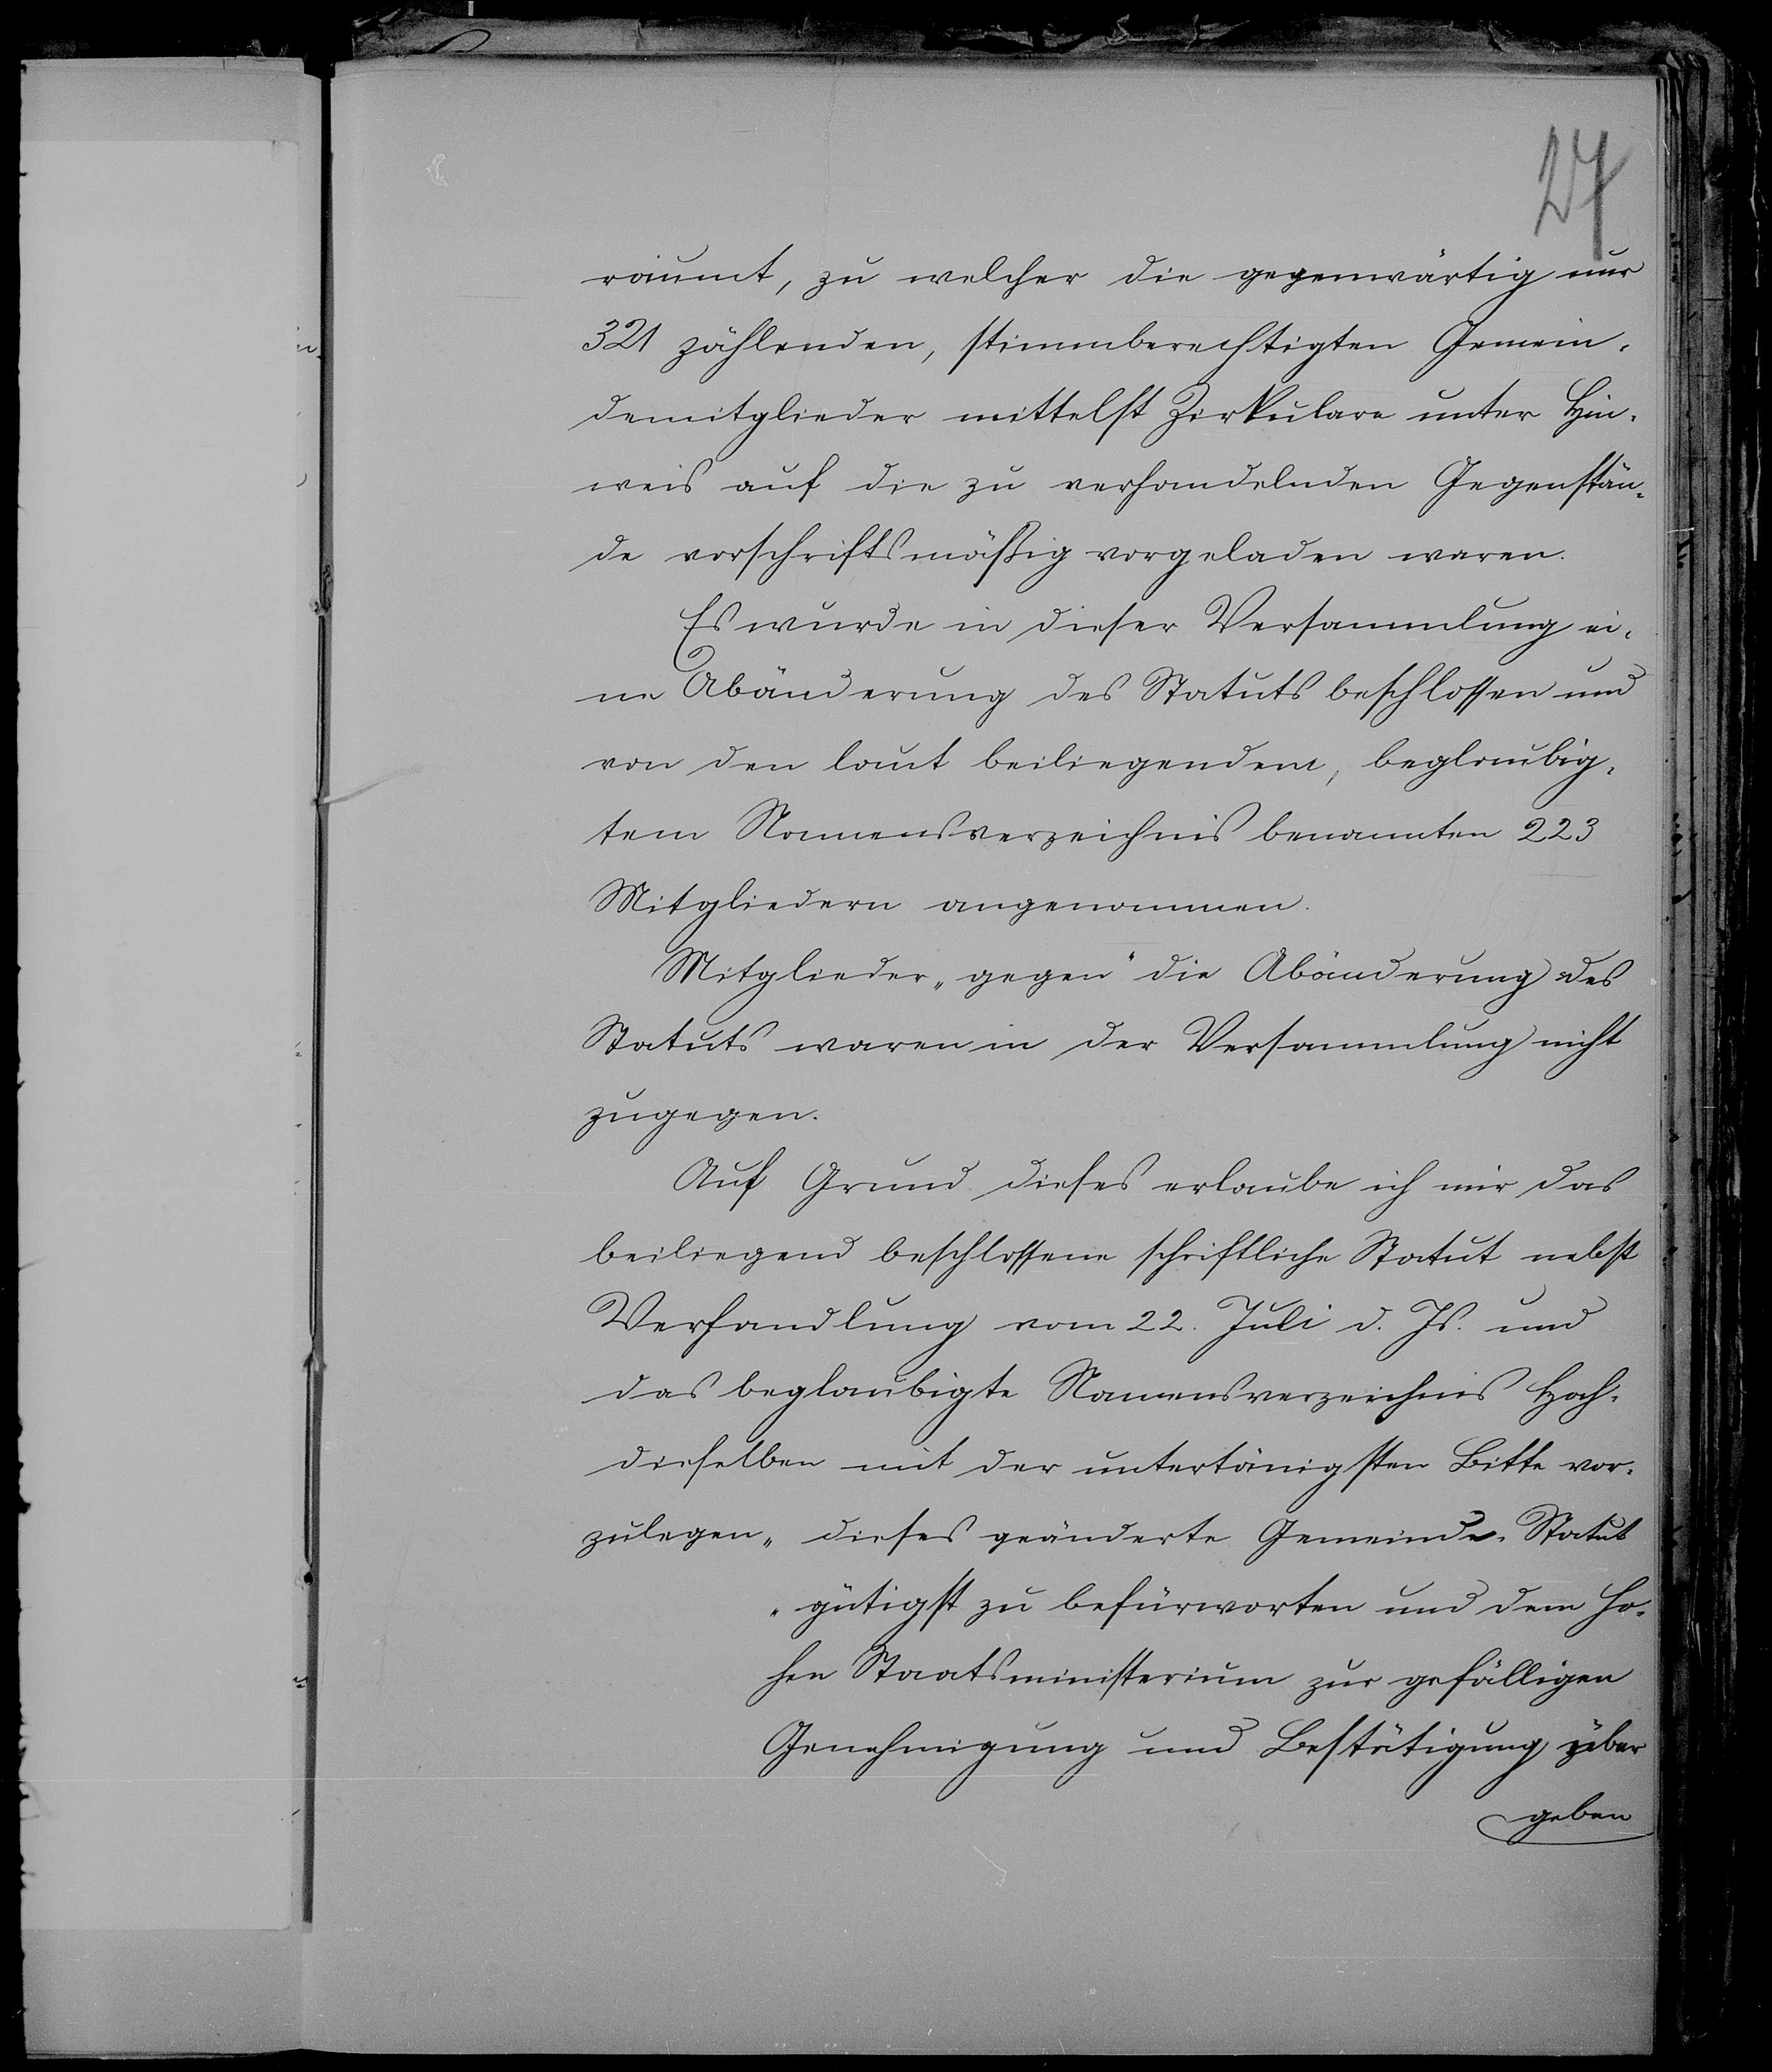 27
räumt, zu welcher die gegenwärtig nur
321 zählenden, stimmberechtigten Gemein-
demitglieder mittelst Zirkulare unter Hin-
weis auf die zu verhandelnden Gegenstän-
de vorschriftsmäßig vorgeladen waren.
Es wurde in dieser Versammlung ei-
ne Abänderung des Statuts beschlossen und
von den laut beiliegendem, beglaubig-
tem Namensverzeichnis benannten 223
Mitgliedern angenommen.
Mitglieder „gegen“ die Abänderung des
Statuts waren in der Versammlung nicht
zugegen.
Auf Grund dieses erlaube ich mir das
beiliegend beschlossene schriftliche Statut nebst
Verhandlung vom 22. Juli d. Js. und
das beglaubigte Namensverzeichnis Hoch-
dieselben mit der untertänigsten Bitte vor-
zulegen „dieses geänderte Gemeinde-Statut
„gütigst zu befürworten und dem ho-
hen Staatsministerium zur gefälligen
Genehmigung und Bestätigung über
geben